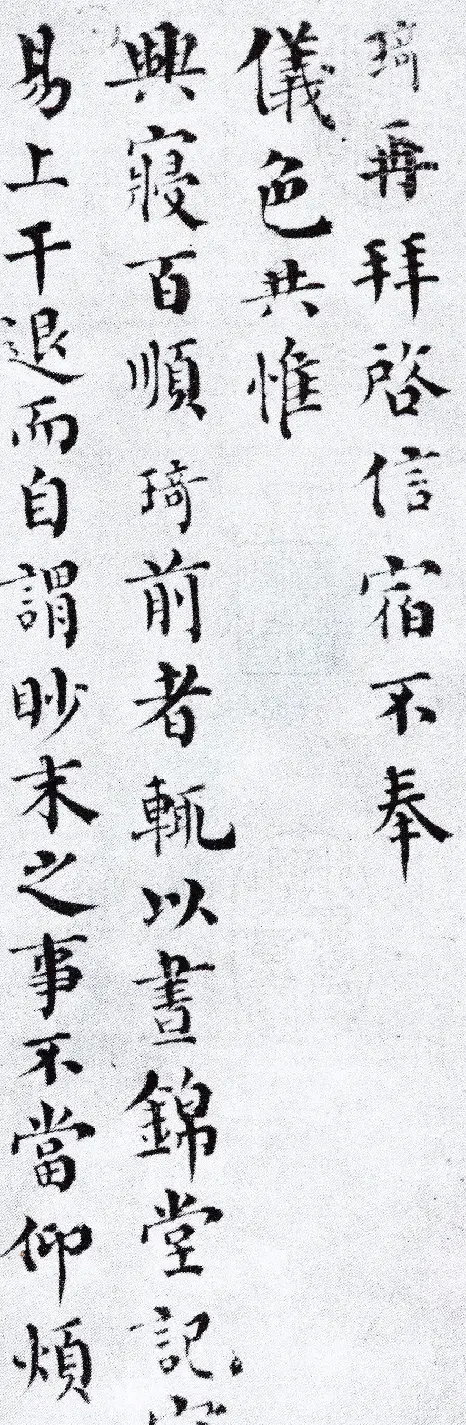 琦再拜啓信宿不奉
儀色共惟
興寢百順琦前者輒以晝錦堂記
易上干退而自謂眇末之事不當仰煩